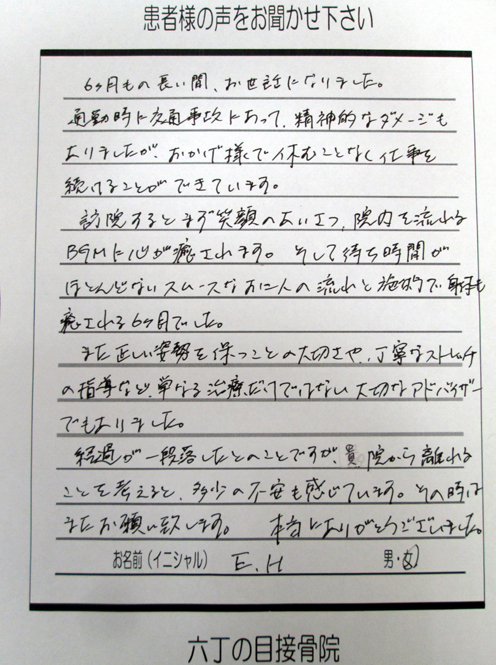 患者様の声をお聞かせ下さい
6ヶ月もの長い間、お世話になりました。
通勤時に交通事故にあって、精神的なダメージも
ありましたが、おかげ様で休むことなく仕事を
続けることができています。
訪院するとまず笑顔のあいさつ、院内を流れる
BGMに心が癒されます。そして待ち時間が
ほとんどないスムースなお二人の流れと施術で身体も
癒される6ヶ月でした。
また正しい姿勢を保つことの大切さや、丁寧なストレッチ
の指導など、単なる治療だけではない大切なアドバイザー
でもありました。
経過が一段落したとのことですが、貴院から離れる
ことを考えると、多少の不安も感じています。その時は
またお願い致します。 本当にありがとうございました。
お名前(イニシャル) E.H 男・女
六丁の目接骨院